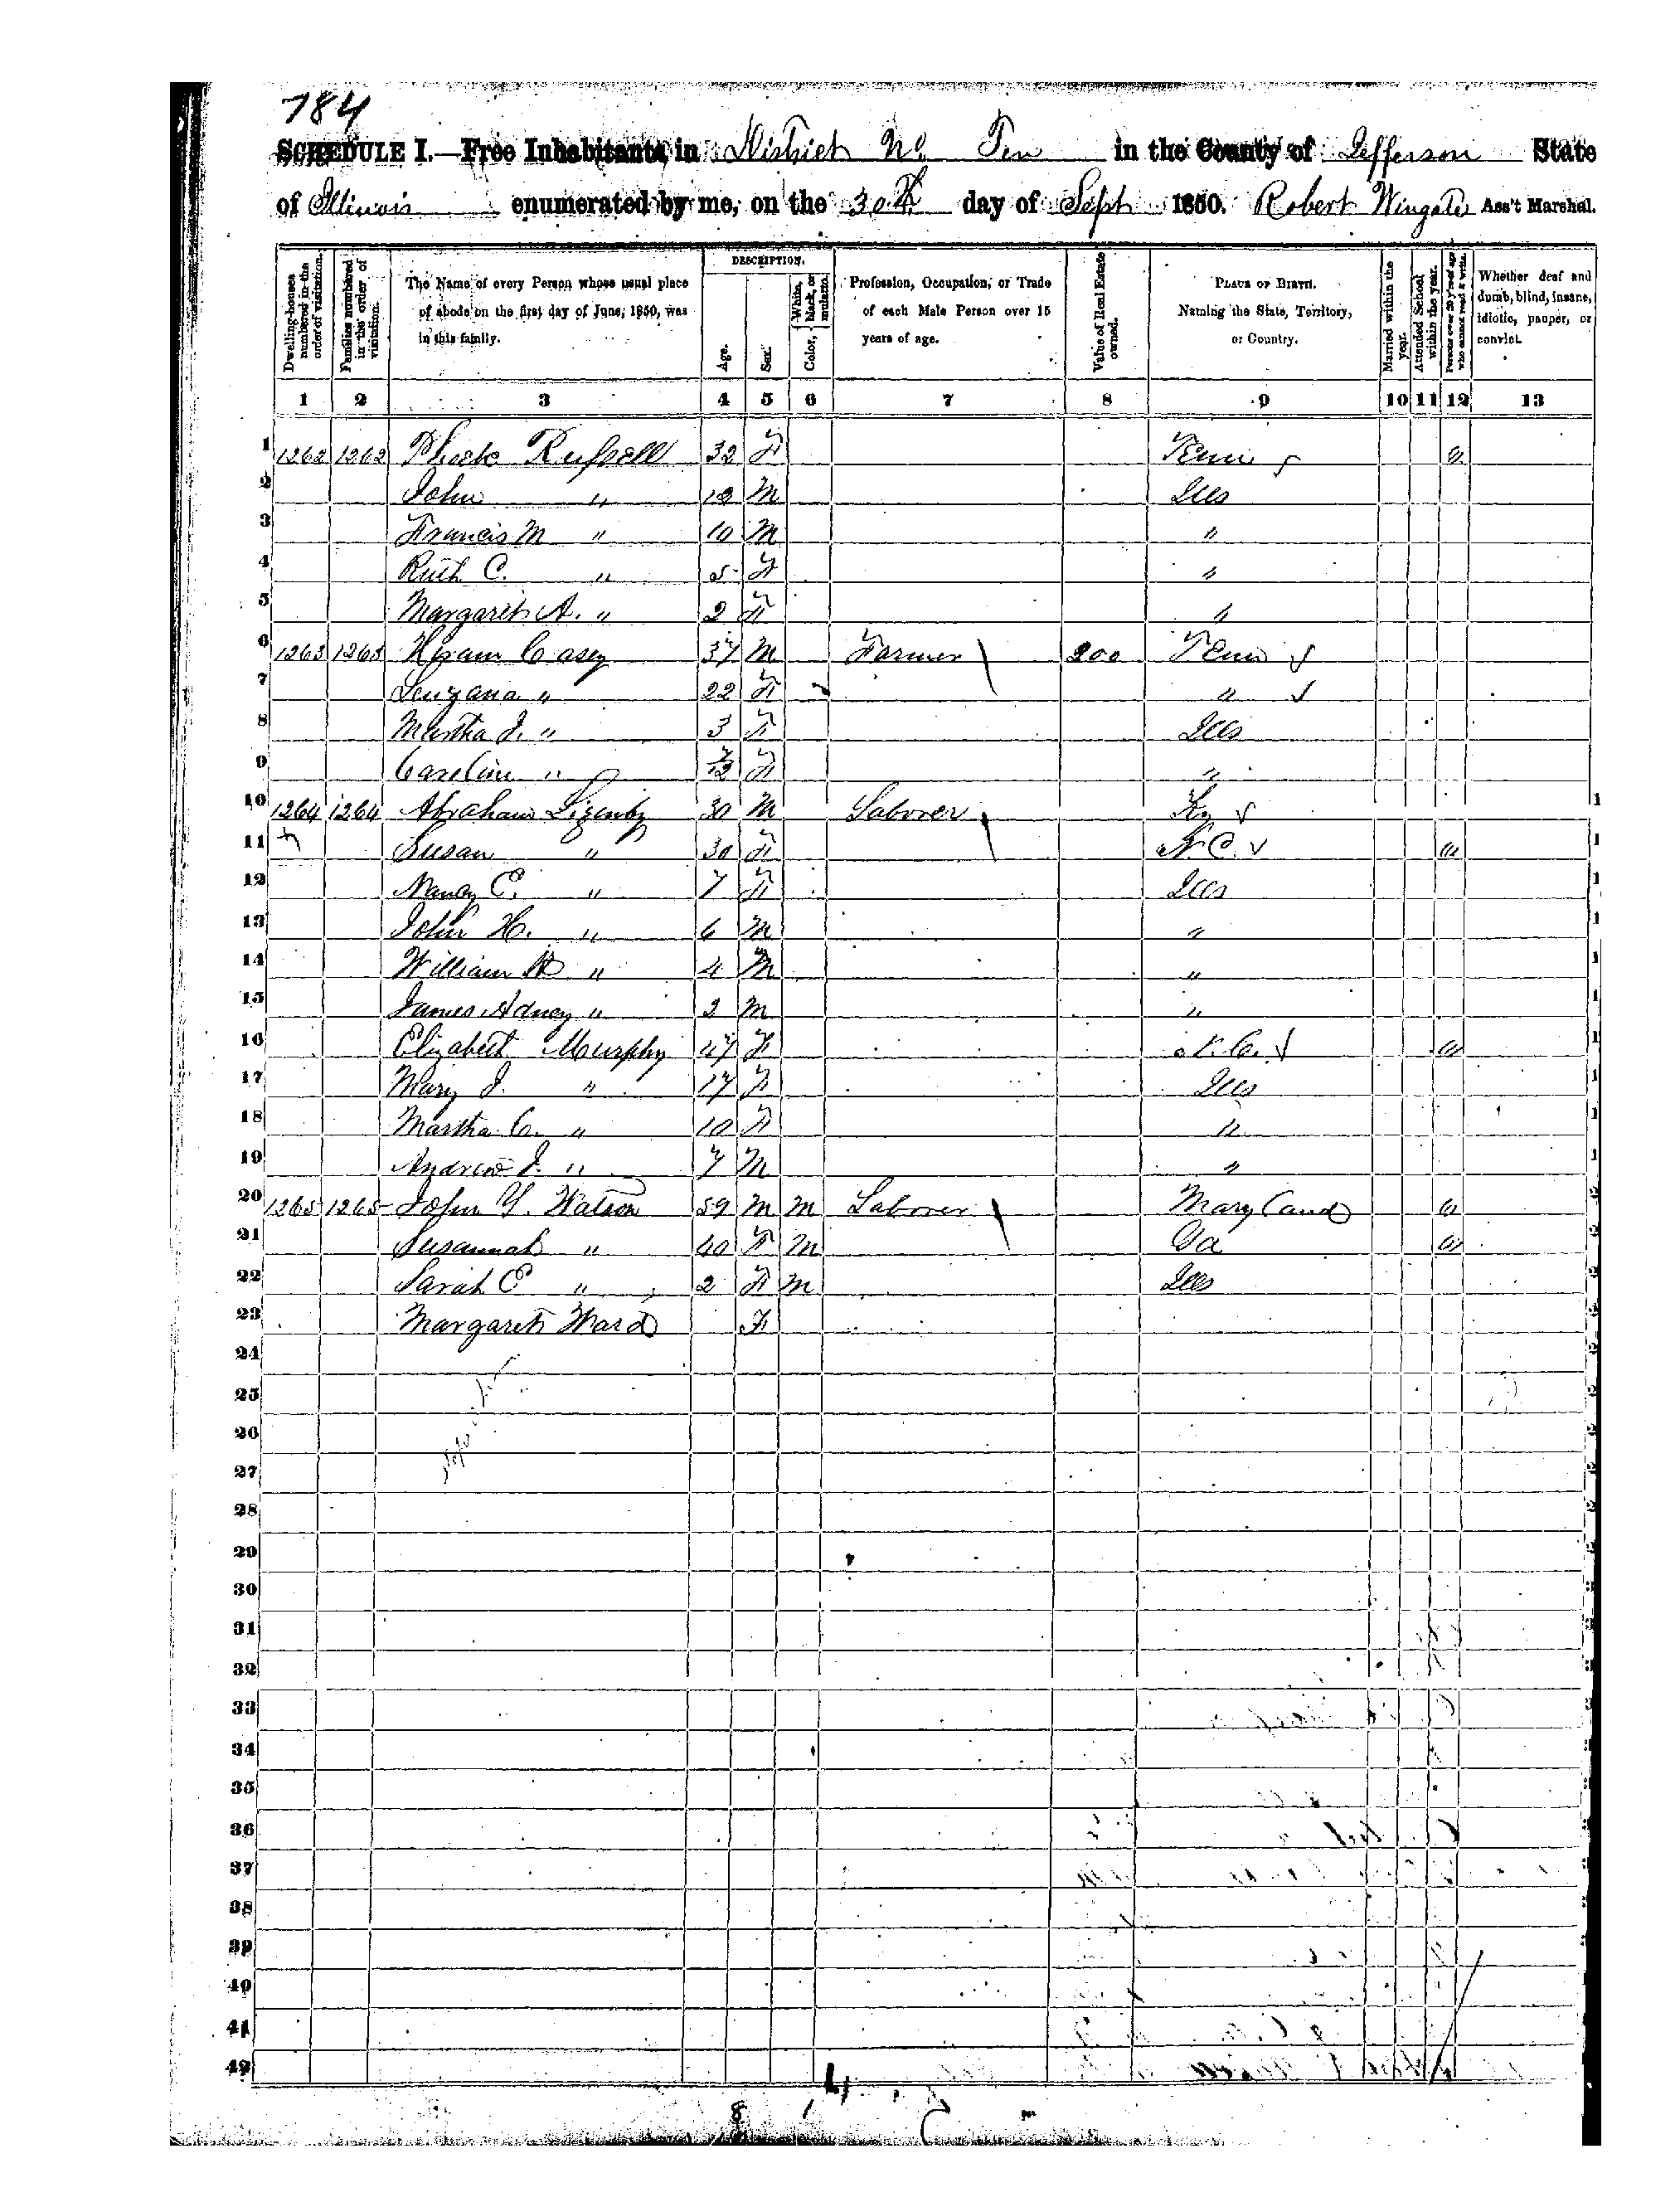 784
SCHEDULE I.—Free Inhabitants in District No. Ten in the County of Jefferson State
of Illinois enumerated by me, on the 30th day of Sept 1850. Robert Wingate Ass't Marshal.
Dwelling-houses numbered in the order of visitation.
Families numbered in the order of visitation.
The Name of every Person whose usual place of abode on the first day of June, 1850, was in this family.
DESCRIPTION.
Age.
Sex.
Color, White, black, or mulatto.
Profession, Occupation, or Trade of each Male Person over 15 years of age.
Value of Real Estate owned.
PLACE OF BIRTH. Naming the State, Territory, or Country.
Married within the year.
Attended School within the year.
Persons over 20 y'rs of age who cannot read & write.
Whether deaf and dumb, blind, insane, idiotic, pauper, or convict.
1 2 3 4 5 6 7 8 9 10 11 12 13
1 1262 1262 Phoebe Russell 32 F Tenn
2 John " M Ills
3 Francis M " 10 M "
4 Ruth C. " 5 F "
5 Margaret A. " 2 F "
6 1263 1263 Hiram Casey 37 M Farmer 200 Tenn
7 " 22 F "
8 Martha J. " 3 F Ills
9 Caroline " F "
10 1264 1264 Abraham 30 M Laborer Ky
11 Susan " 30 F N C.
12 Nancy E. " 7 F Ills
13 John H. " 6 M "
14 William " 4 M "
15 James " 2 M "
16 Elizabeth Murphy 47 F N. C.
17 Mary J. " 17 F Ills
18 Martha C. " 10 F "
19 Andrew J. " 7 M "
20 1265 1265 John Y. Watson 59 M M Laborer Maryland
21 Susannah " 40 F M Ga
22 Sarah E " 2 F M Ills
23 Margaret Ward F
24
25
26
27
28
29
30
31
32
33
34
35
36
37
38
39
40
41
42